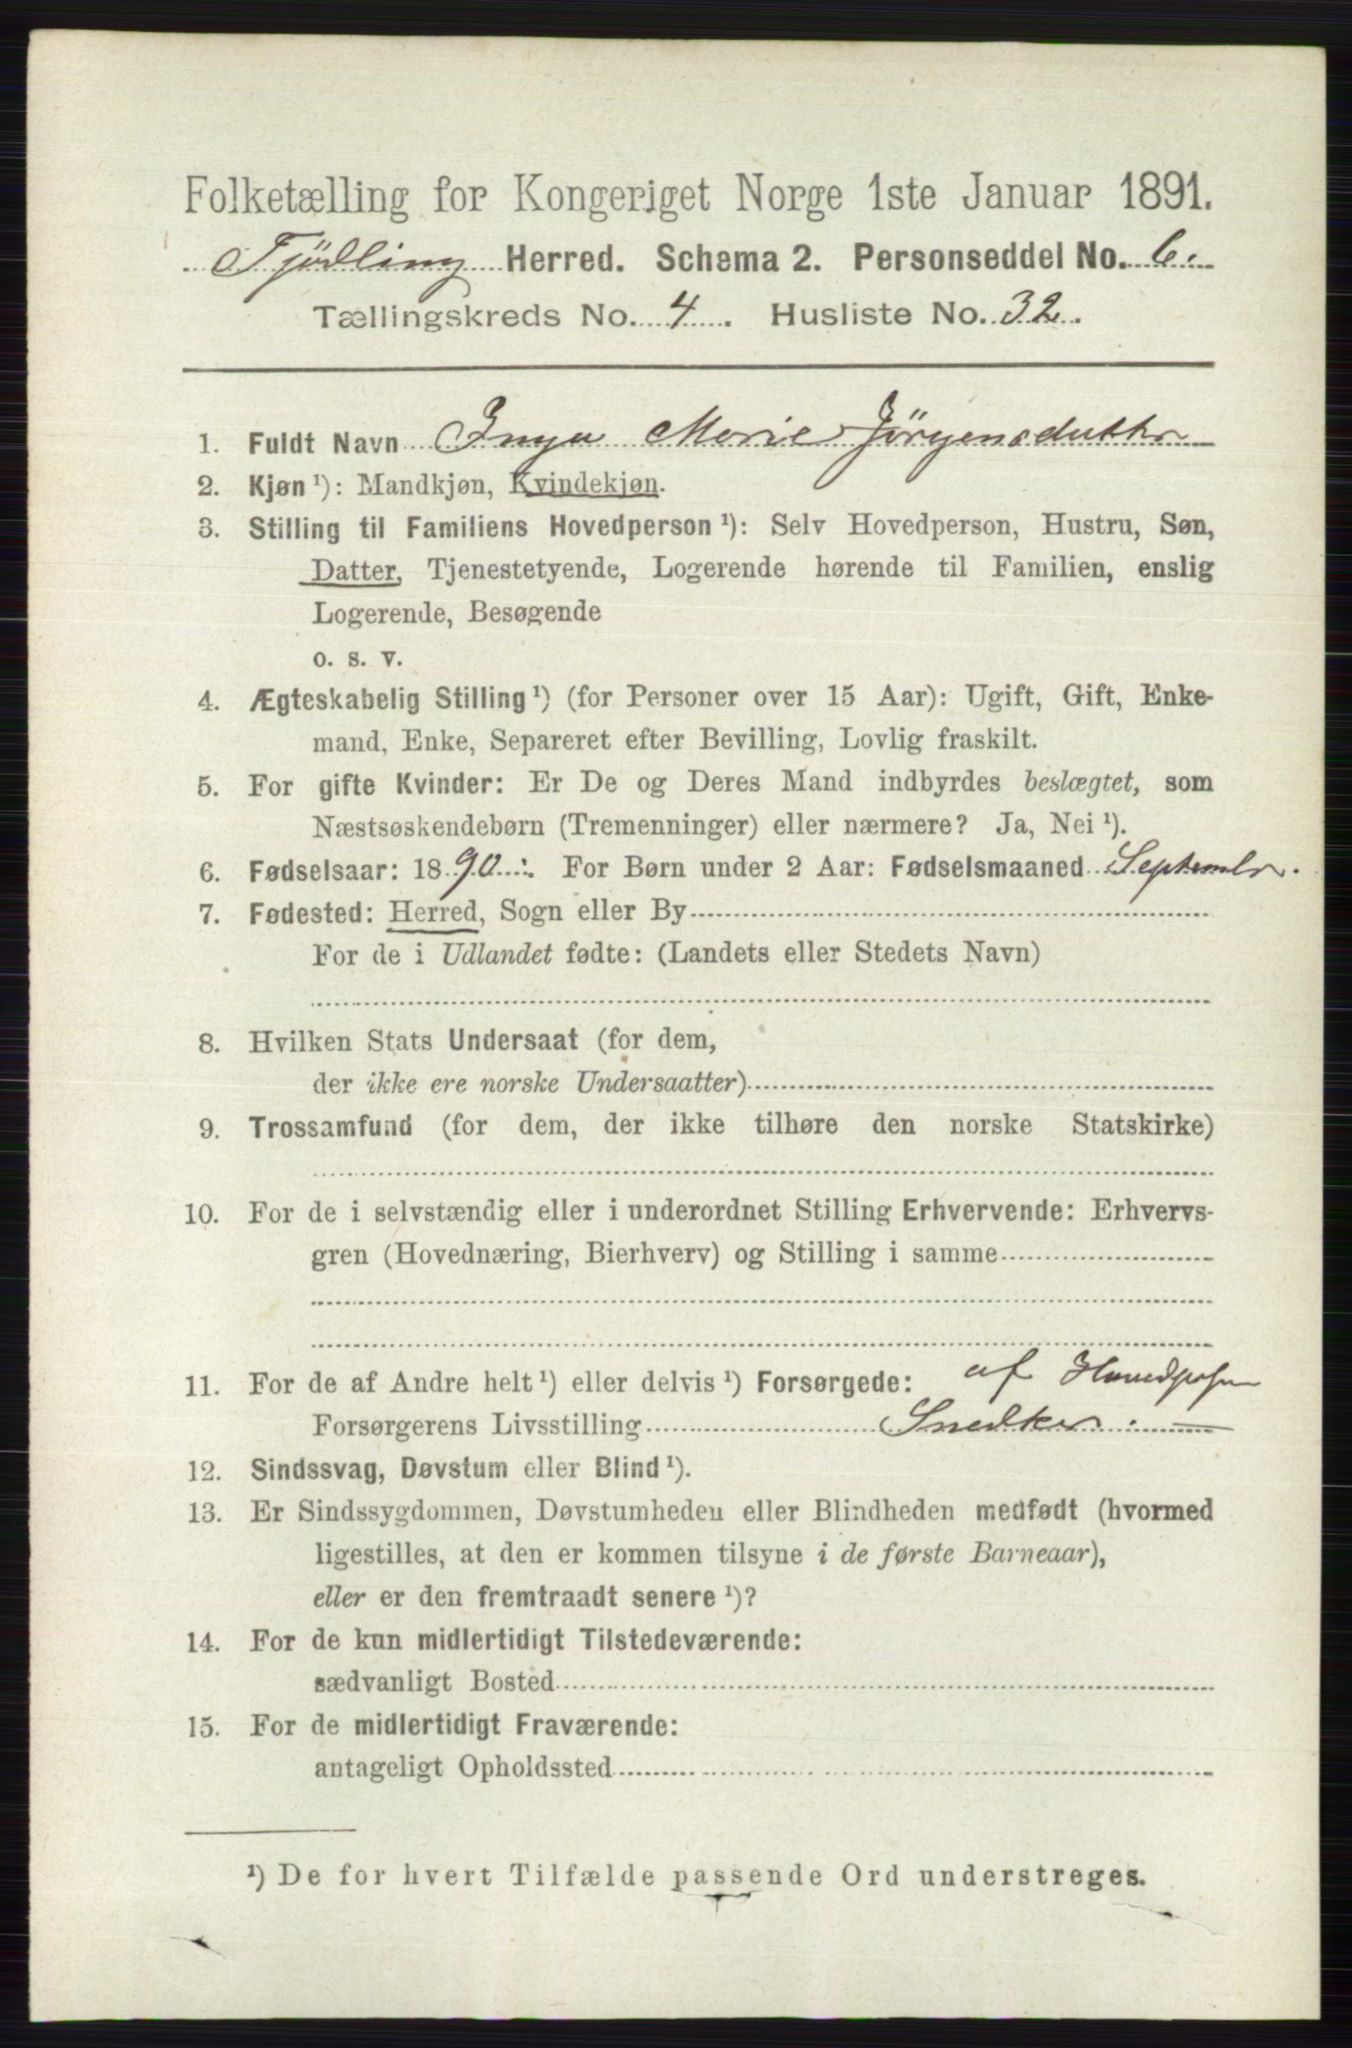 Folketælling for Kongeriget Norge 1ste Januar 1891.
Tjödling Herred. Schema 2. Personseddel No. 6.
Tællingskreds No. 4. Husliste No. 32.
1. Fuldt Navn Inga Marie Jörgensdatter
2. Kjøn ¹): Mandkjøn, Kvindekjøn.
3. Stilling til Familiens Hovedperson ¹): Selv Hovedperson, Hustru, Søn,
Datter, Tjenestetyende, Logerende hørende til Familien, enslig
Logerende, Besøgende
o. s. v.
4. Ægteskabelig Stilling ¹) (for Personer over 15 Aar): Ugift, Gift, Enke-
mand, Enke, Separeret efter Bevilling, Lovlig fraskilt.
5. For gifte Kvinder: Er De og Deres Mand indbyrdes beslægtet, som
Næstsøskendebørn (Tremenninger) eller nærmere? Ja, Nei ¹).
6. Fødselsaar: 1890. For Børn under 2 Aar: Fødselsmaaned September.
7. Fødested: Herred, Sogn eller By
For de i Udlandet fødte: (Landets eller Stedets Navn)
8. Hvilken Stats Undersaat (for dem,
der ikke ere norske Undersaatter)
9. Trossamfund (for dem, der ikke tilhøre den norske Statskirke)
10. For de i selvstændig eller i underordnet Stilling Erhvervende: Erhvervs-
gren (Hovednæring, Bierhverv) og Stilling i samme
11. For de af Andre helt ¹) eller delvis ¹) Forsørgede: af Hovedpersn
Forsørgerens Livsstilling Snedker
12. Sindssvag, Døvstum eller Blind ¹).
13. Er Sindssygdommen, Døvstumheden eller Blindheden medfødt (hvormed
ligestilles, at den er kommen tilsyne i de første Barneaar),
eller er den fremtraadt senere ¹)?
14. For de kun midlertidigt Tilstedeværende:
sædvanligt Bosted
15. For de midlertidigt Fraværende:
antageligt Opholdssted
¹) De for hvert Tilfælde passende Ord understreges.